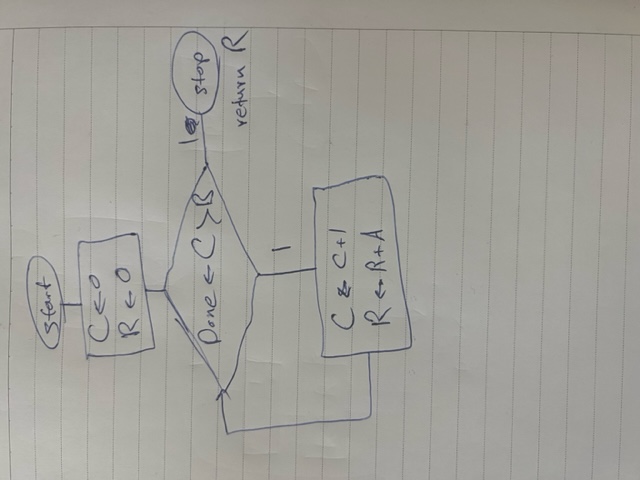 start
C ← 0
R ← 0
Done ← C > B
1
stop
return R
1
C ← C+1
R ← R+A